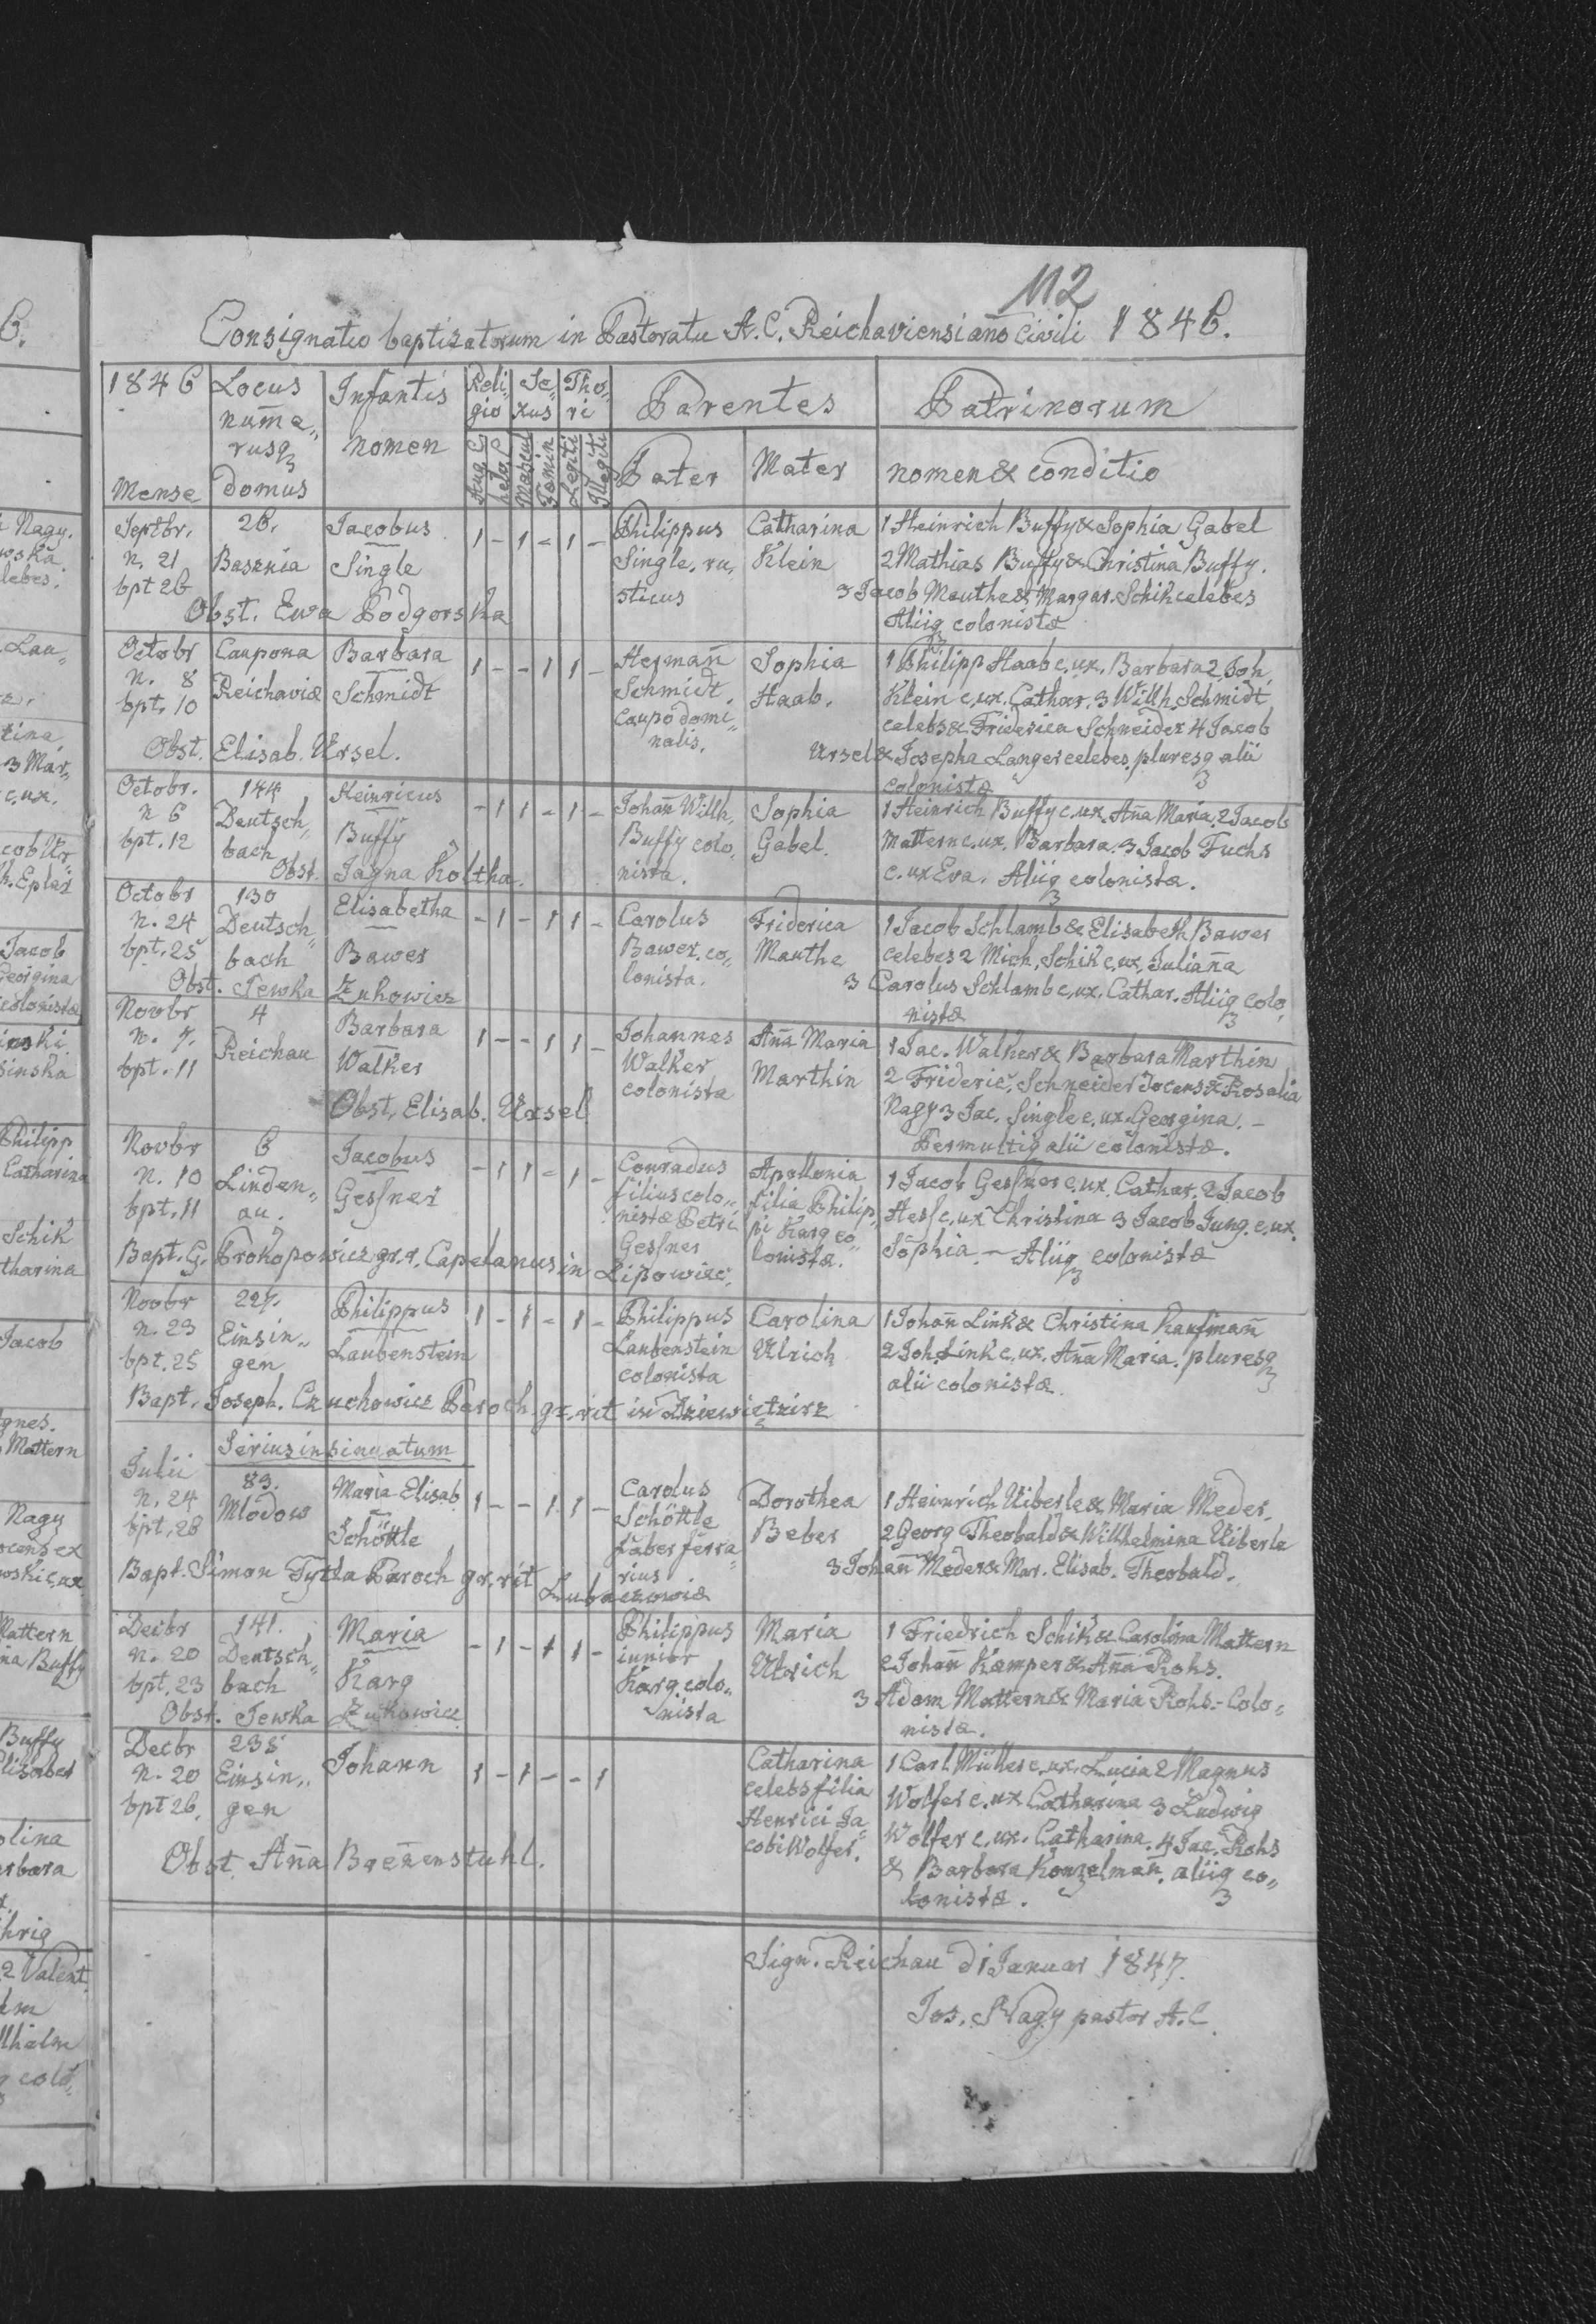 112
Consignatio baptizatorum in Pastoratu A. C. Reichaviensi año civili 1846.
1846 Locus nume„ rusq domus Infantis nomen Reli„ gio Se„ xus Tho„ ri Parentes Patrinorum
Mense Aug C helv C Mascul Femin Legiti Illegiti Pater Mater nomen & conditio
Septbr. 26. Jacobus 1 - 1 - 1 - Philippus Catharina 1 Heinrich Buffy & Sophia Gabel
n. 21 Basznia Single Single. ru„ Klein 2 Mathias Buffy & Christina Buffy.
bpt 26 sticus 3 Jacob Mauthe & Margar. Schik celebes
Obst. Ewa Podgorska
Aliiq colonistæ
Octobr Caupona Barbara 1 - - 1 1 - Hermañ Sophia 1 Philipp Haab c. ux. Barbara 2 Joh.
n. 8 Reichaviæ Schmidt Schmidt Haab. Klein c. ux. Cathar. 3 Willh. Schmidt
bpt. 10 Caupo domi„ celebs & Friderica Schneider 4 Jacob
Obst. Elisab. Ursel. nalis. Ursel & Josepha Langer celebes. pluresq alii
colonistæ
Octobr. 144 Heinricus - 1 1 - 1 - Johañ Willh. Sophia 1 Heinrich Buffy c. ux. Aña Maria. 2 Jacob
n 6 Deutsch„ Buffy Buffy colo„ Gabel. Mattern c. ux. Barbara. 3 Jacob Fuchs
bpt. 12 bach nista. c. ux Eva. Aliiq colonistæ.
Obst. Jagna Koltha.
Octobr 130 Elisabetha - 1 - 1 1 - Carolus Friderica 1 Jacob Schlamb & Elisabeth Bawer
n. 24 Deutsch„ Bawer Bawer. co„ Mauthe celebes 2 Mich. Schik c. ux. Juliaña
bpt. 25 bach lonista. 3 Carolus Schlamb c. ux. Cathar. Aliiq colo„
Obst. Jewka Zukowicz nistæ
Novbr 4 Barbara 1 - - 1 1 - Johannes Aña Maria 1 Jac. Walker & Barbara Marthin
n. 7. Reichau Walker Walker Marthin 2 Frideric. Schneider docens & Rosalia
bpt. 11 colonista Nagy 3 Jac. Single c. ux. Georgina. -
Obst. Elisab. Ursel Permultiq alii colonistæ.
Novbr 6 Jacobus - 1 1 - 1 - Conradus Apollonia 1 Jacob Gessner c. ux. Cathar. 2 Jacob
n. 10 Linden„ Gessner filius colo„ filia Philip„ Hess c. ux Christina 3 Jacob Jung. c. ux.
bpt. 11 au. nistæ Petri pi Karg co„ Sophia - Aliiq colonistæ
Gessner lonistæ.
Bapt. G. Prokopowicz gr. r. Capelanus in Lipowiec.
Novbr 227. Philippus 1 - 1 - 1 - Philippus Carolina 1 Johañ Link & Christina Kaufmañ
n. 23 Einsin„ Laubenstein Laubenstein Ulrich 2 Joh. Link c. ux. Aña Maria. pluresq
bpt. 25 gen colonista alii colonistæ.
Bapt. Joseph. Czuchowicz Paroch. gr. rit in Dziewięzirz
Serius insinuatum
Julii 83. Maria Elisab. 1 - - 1 1 - Carolus Dorothea 1 Heinrich Uiberle & Maria Meder.
n. 24 Mlodow Schöttle Schöttle Beber 2 Georg Theobald & Willhelmina Uiberle
bpt. 28 faber ferra„ rius 3 Johañ Meder & Mar. Elisab. Theobald.
Bapt. Simon Tytla Paroch gr. rit Lubaczoviæ
Decbr 141. Maria - 1 - 1 1 - Philippus Maria 1 Friedrich Schik & Carolina Mattern
n. 20 Deutsch„ Karg iunior Ulrich 2 Johañ Kamper & Aña Rohs.
bpt. 23 bach Karg. colo„ 3 Adam Mattern & Maria Rohs.- Colo„
Obst. Jewka Zukowicz nista nistæ.
Decbr 235 Johann 1 - 1 - - 1 Catharina 1 Carl Müller c. ux. Lucia 2 Magnus
n. 20 Einsin„ celebs filia Wolfer c. ux Catharina 3 Ludwig
bpt 26. gen Henrici Ja„ Wolfer c. ux. Catharina. 4 Jac. Rohs
Obst. Aña Baerenstuhl. cobi Wolfer. & Barbara Konzelmañ. aliiq co„
lonistæ.
Sign. Reichau d 1 Januar 1847.
Jos. Nagy pastor A. C.